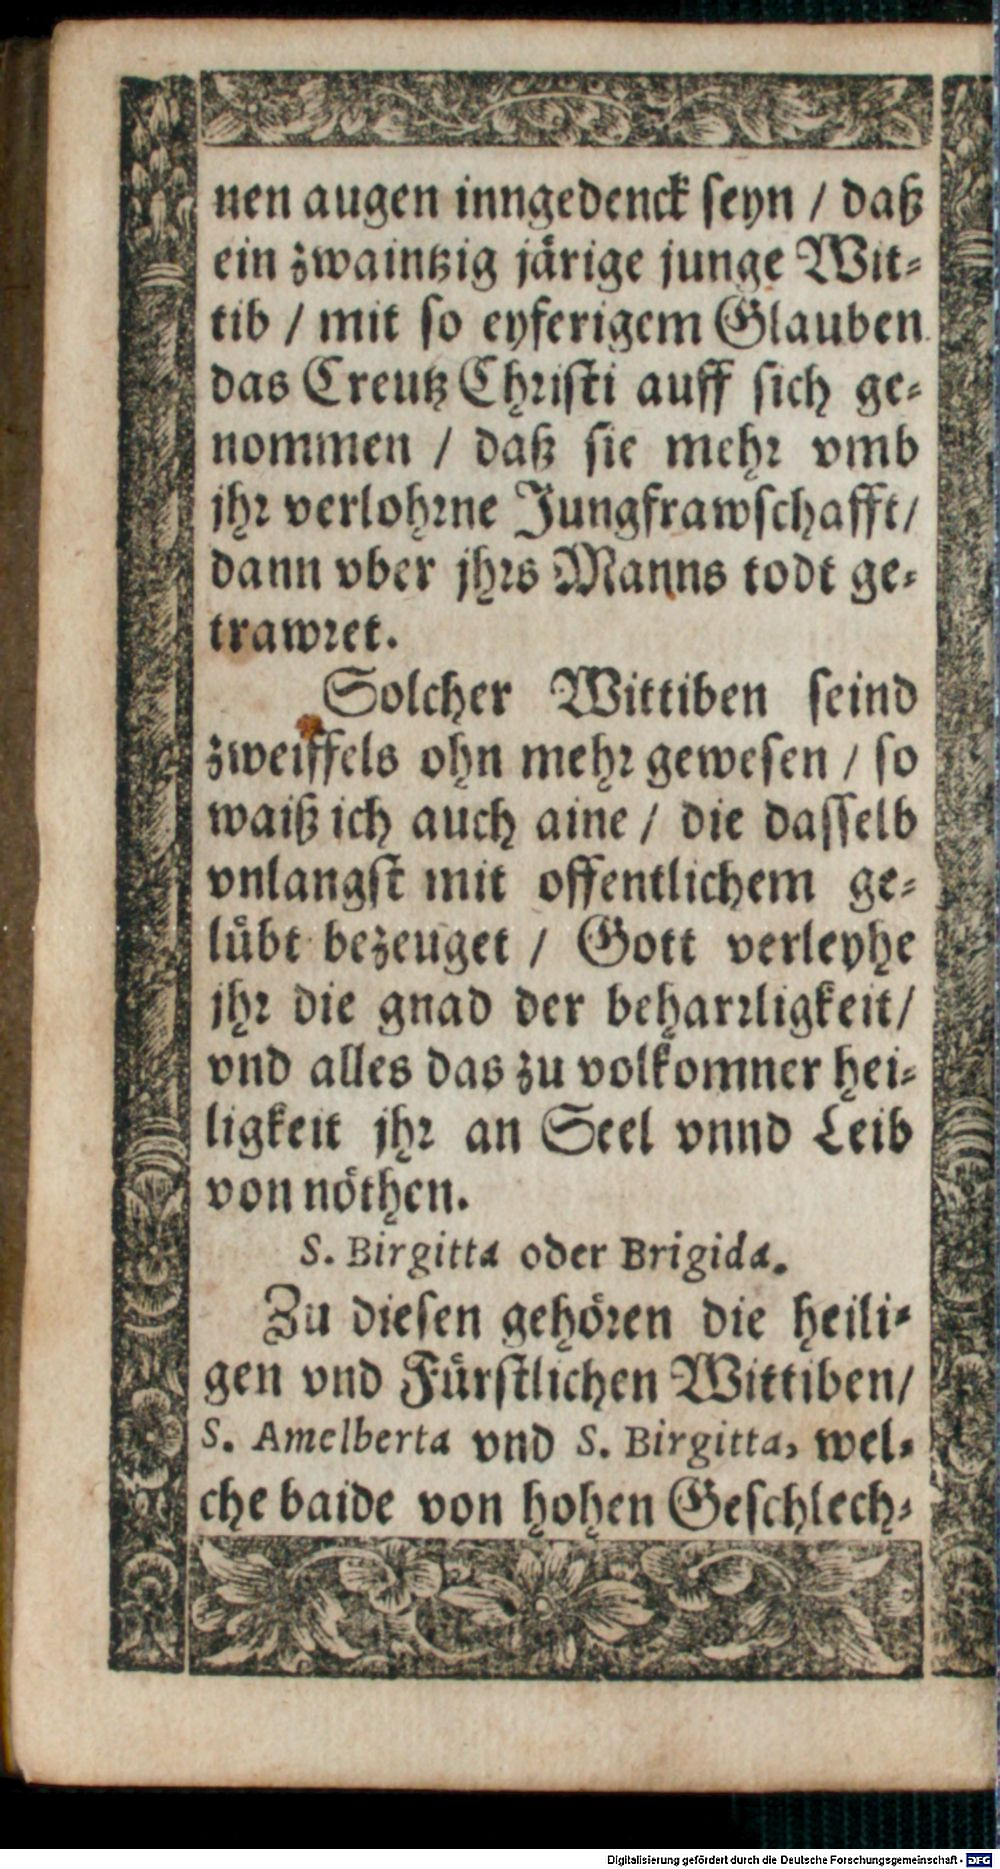 nen augen inngedenck seyn / daß
ein zwaintzig järige junge Wit-
tib / mit so eyferigem Glauben
das Creutz Christi auff sich ge-
nommen / daß sie mehr vmb
jhr verlohrne Jungfrawschafft /
dann vber jhrs Manns todt ge-
trawret.
Solcher Wittiben seind
zweiffels ohn mehr gewesen / so
waiß ich auch aine / die dasselb
vnlangst mit offentlichem ge-
lübt bezeuget / Gott verleyhe
jhr die gnad der beharrligkeit /
vnd alles das zu volkomner hei-
ligkeit jhr an Seel vnnd Leib
von nöthen.
S. Birgitta oder Brigida.
Zu diesen gehören die heili-
gen vnd Fürstlichen Wittiben /
S. Amelberta vnd S. Birgitta, wel-
che baide von hohen Geschlech-
Digitalisierung gefördert durch die Deutsche Forschungsgemeinschaft - DFG